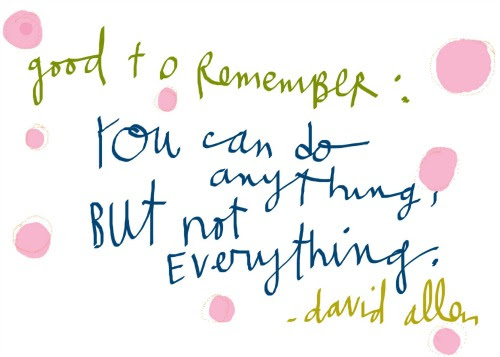 good to Remember:
YOU can do
anything,
BUt not
EVerything.
-david allen